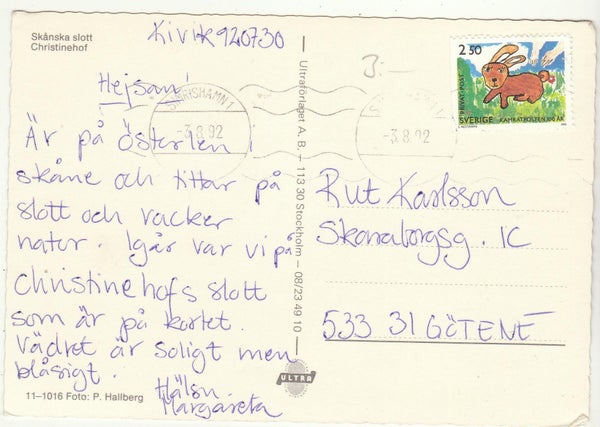 Skånska slott
Christinehof
Kivik 920730
Hejsan!
Är på Österlen i
skåne och tittar på
slott och vacker
natur. Igår var vi på
Christinehofs slott
som är på kortet.
Vädret är soligt men
blåsigt.
Hälsn.
Margareta
11–1016 Foto: P. Hallberg
Ultraförlaget A. B. – 113 30 Stockholm – 08/23 49 10
ULTRA
SIMRISHAMN 1
-3.8.92
-3.8.92
3:-
2 50
SVERIGE KAMRATPOSTEN 100 ÅR
Rut Karlsson
Skaraborgsg. 1C
533 31 GÖTENE